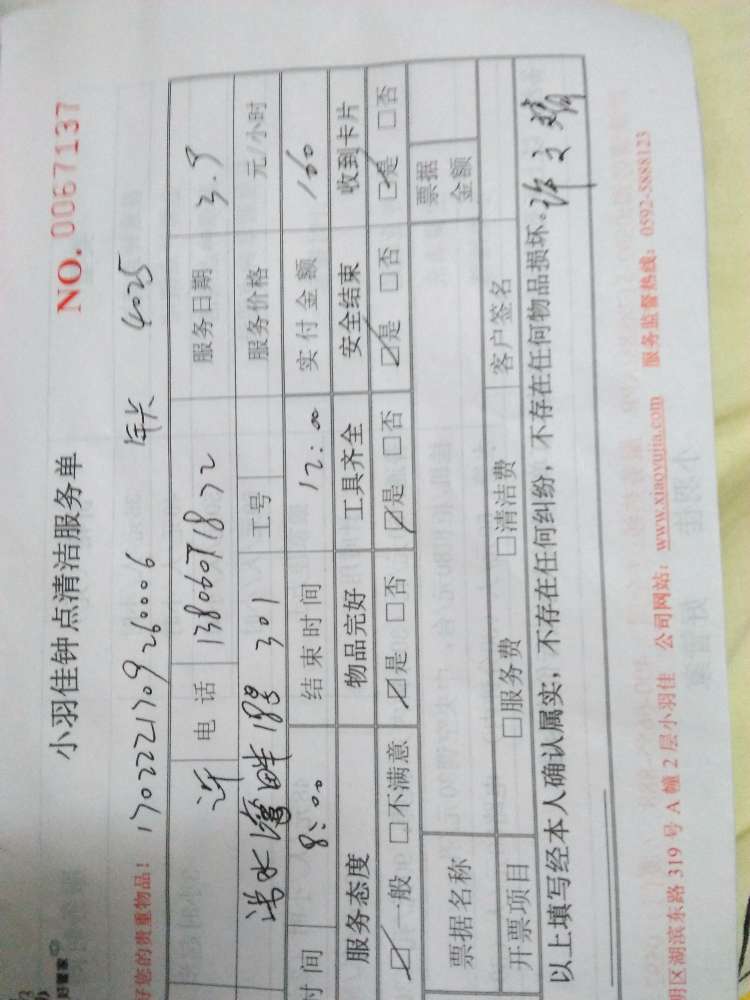 好管家
小羽佳钟点清洁服务单
NO. 0067137
好您的贵重物品！ 170222170926 0006 年卡 4025
许 电 话 13806071872 服务日期 3.9
浩水湾畔 188 301 工号 服务价格 元/小时
时间 8:00 结束时间 12:00 实付金额 160
服务态度 物品完好 工具齐全 安全结束 收到卡片
☑一般 □不满意 ☑是 □否 ☑是 □否 ☑是 □否 ☑是 □否
票据名称 票据金额
开票项目 □服务费 □清洁费 客户签名
以上填写经本人确认属实，不存在任何纠纷，不存在任何物品损坏。许文婧
明区湖滨东路 319 号 A 幢 2 层小羽佳 公司网站：www.xiaoyujia.com 服务监督热线：0592-5888123